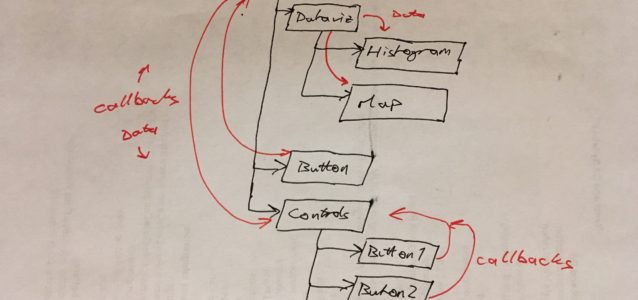 Dataviz
Data
Histogram
Map
callbacks
Data
Button
Controls
Button1
callbacks
Button2